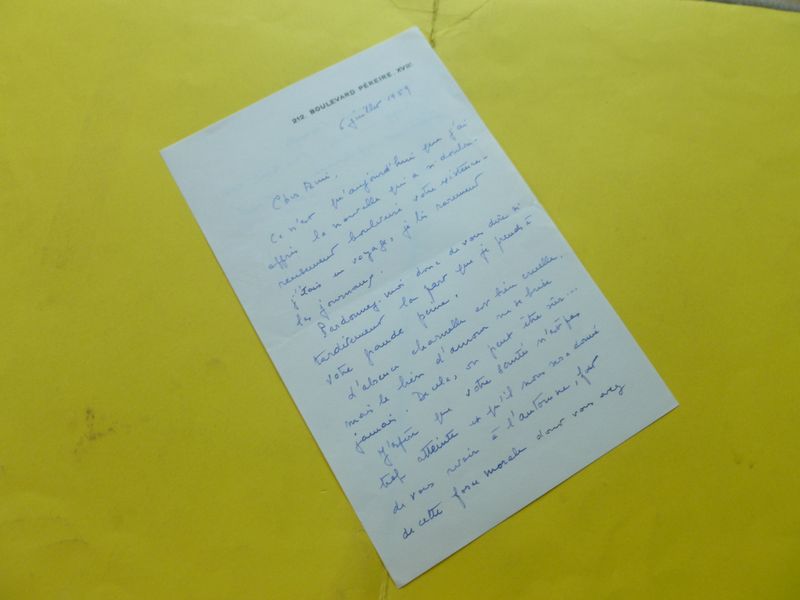 212, BOULEVARD PÉREIRE. XVII
6 juillet 1959
Cher Ami,
Ce n'est qu'aujourd'hui que j'ai
appris la nouvelle qui a si doulou-
reusement bouleversé votre existence -
j'étais en voyage, je lis rarement
les journaux.
Pardonnez-moi donc de vous dire si
tardivement la part que je prends à
votre grande peine.
L'absence charnelle est bien cruelle,
mais le lien d'amour ne se brise
jamais. De cela, on peut être sûr...
J'espère que votre santé n'est pas
trop atteinte et qu'il nous sera donné
de vous revoir à l'automne, fort
de cette force morale dont vous avez